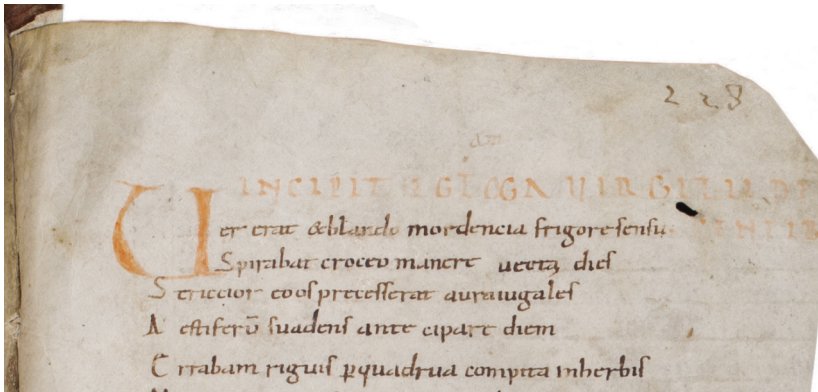 228
INCIPIT EGLOGA VIRGILII DE
Uer erat & blando mordencia frigore sensu
Spirabat croceo mane
dies
Striccior eoos precesserat aura iugales
Aestiferū suadens ante cipare diem
Errabam riguis ꝑ quadrua compita in herbis